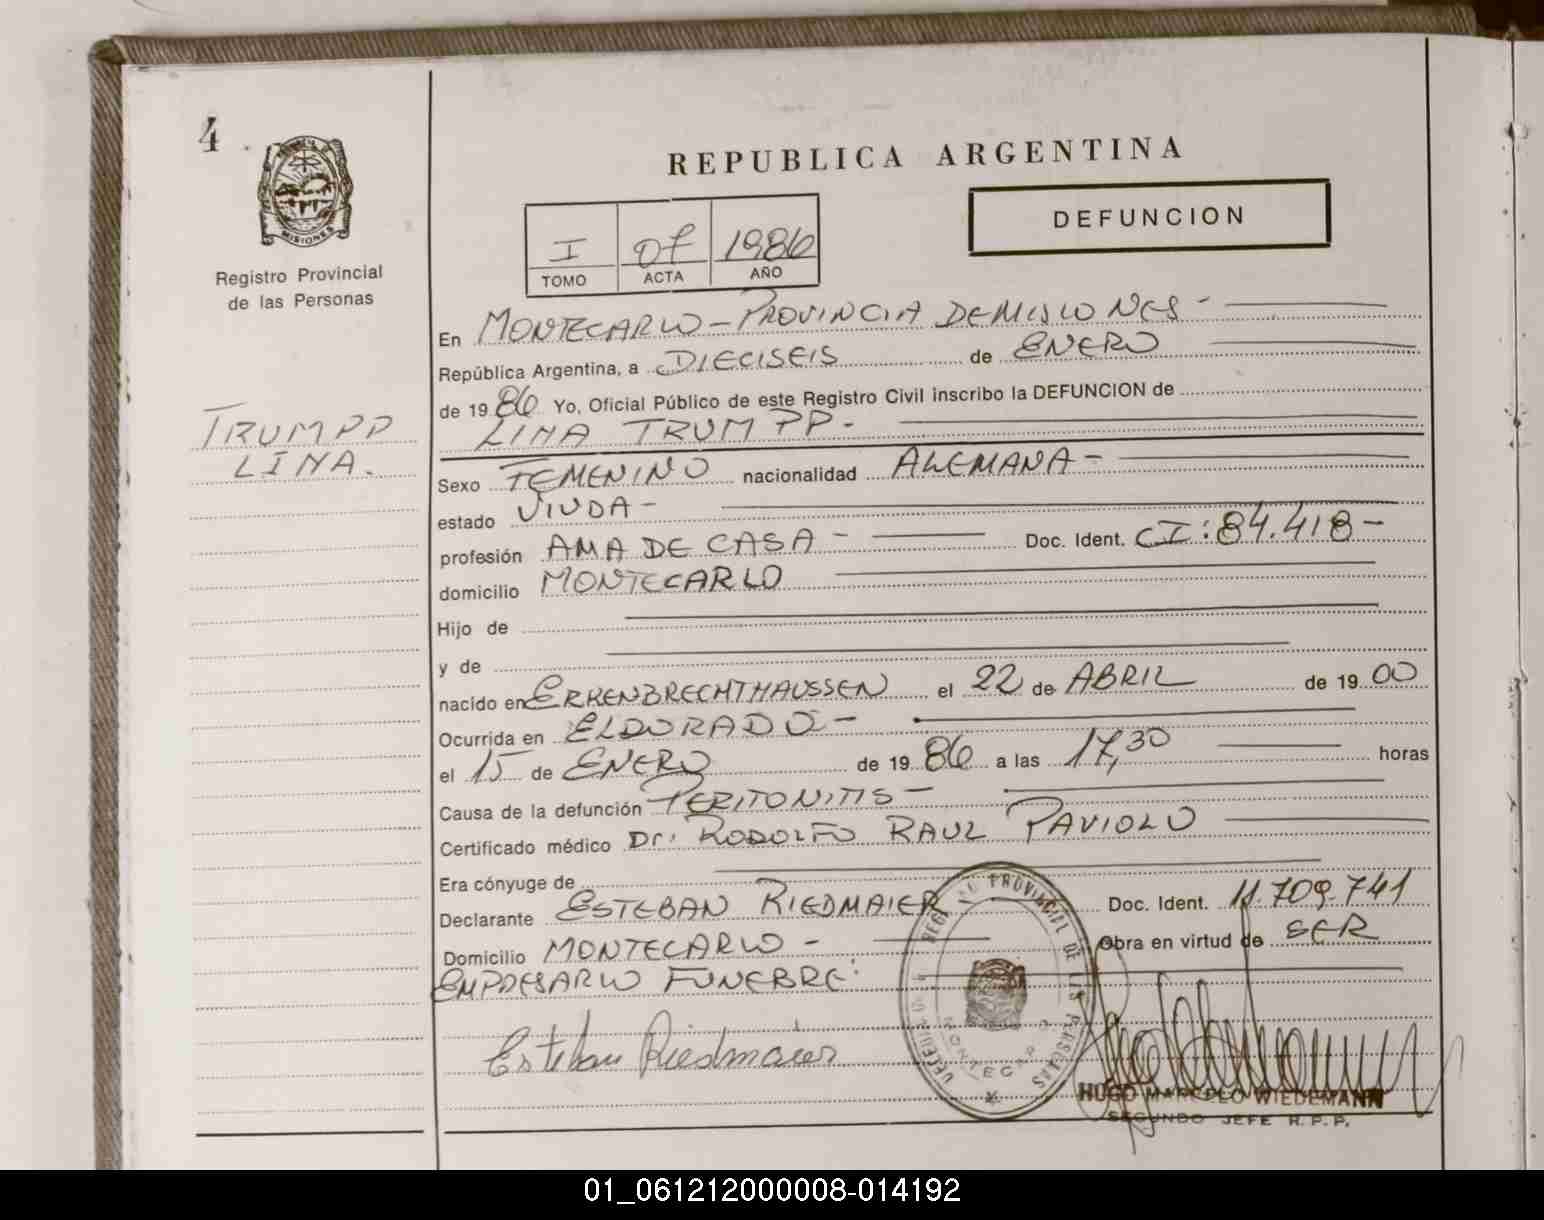 4
MISIONES
Registro Provincial
de las Personas
TRUMPP
LINA.
REPUBLICA ARGENTINA
DEFUNCION
I 04 1986
TOMO ACTA AÑO
En MONTECARLO - PROVINCIA DE MISIONES -
República Argentina, a DIECISEIS de ENERO
de 1986 Yo, Oficial Público de este Registro Civil inscribo la DEFUNCION de
LINA TRUMPP.
Sexo FEMENINO nacionalidad ALEMANA -
estado VIUDA -
profesión AMA DE CASA - Doc. Ident. CI: 84.418 -
domicilio MONTECARLO
Hijo de
y de
nacido en ERKENBRECHTHAUSSEN el 22 de ABRIL de 1900
Ocurrida en ELDORADO -
el 15 de ENERO de 1986 a las 17,30 horas
Causa de la defunción PERITONITIS -
Certificado médico Dr. RODOLFO RAUL PAVIOLO
Era cónyuge de
Declarante ESTEBAN RIEDMAIER Doc. Ident. 11.709.741
Domicilio MONTECARLO - Obra en virtud de SER
EMPRESARIO FUNEBRE.
Esteban Riedmaier
PROVINCIAL DE LAS PERSONAS
HUGO MARCELO WIEDEMANN
SEGUNDO JEFE R.P.P.
01_061212000008-014192